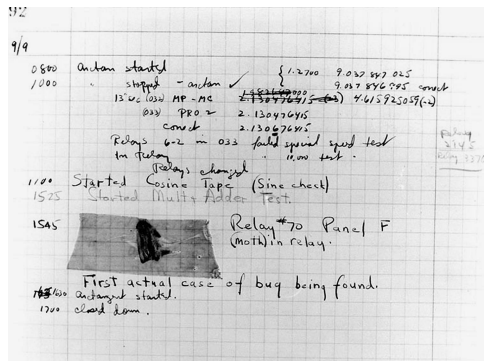 92
9/9
0800 Antan started { 1.2700 9.037 847 025
1000 " stopped - antan ✓ 9.037 846 995 correct
13" uc (032) MP - MC 2.130476415 4.615925059(-2)
(033) PRO 2 2.130476415
correct 2.130676415
Relays 6-2 in 033 failed special speed test
in Relay " 10,000 test .
Relays changed
Relay
2145
Relay 3370
1100 Started Cosine Tape (Sine check)
1525 Started Mult + Adder Test.
1545 Relay #70 Panel F
(moth) in relay.
First actual case of bug being found.
1630 Antangent started.
1700 closed down.